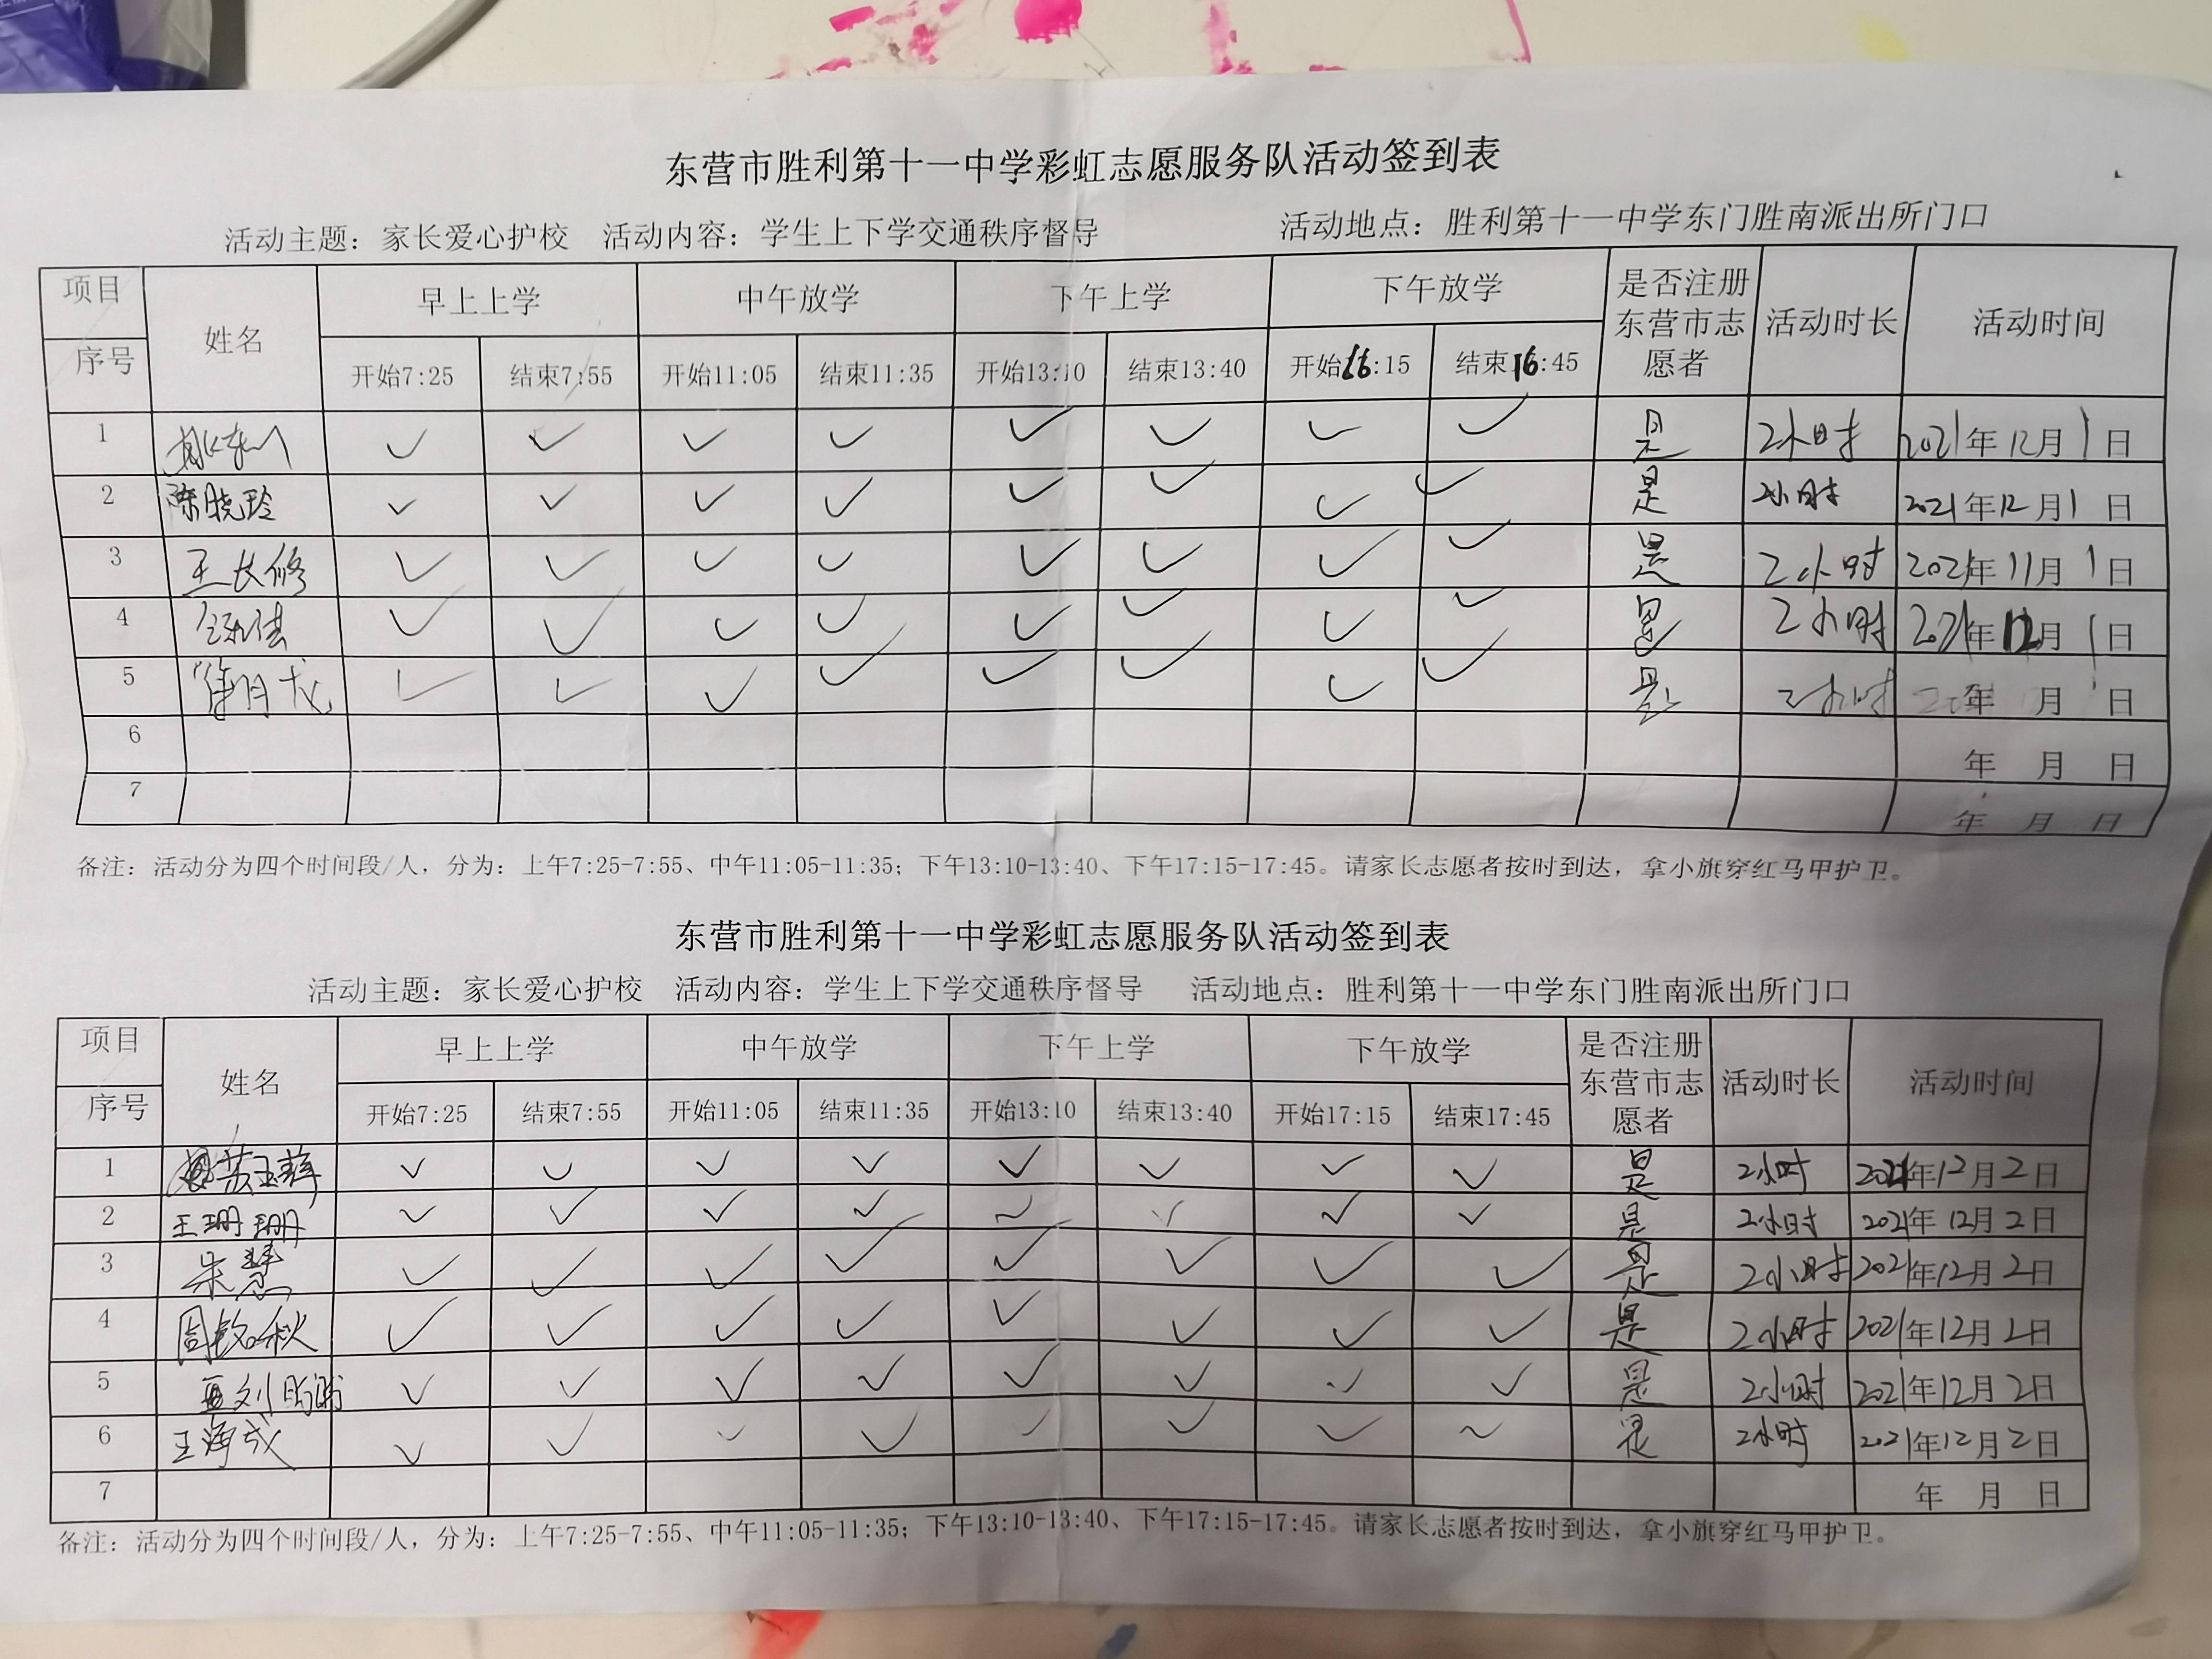 东营市胜利第十一中学彩虹志愿服务队活动签到表
活动主题：家长爱心护校 活动内容：学生上下学交通秩序督导 活动地点：胜利第十一中学东门胜南派出所门口
项目 序号 姓名 早上上学 中午放学 下午上学 下午放学 是否注册东营市志愿者 活动时长 活动时间
开始7:25 结束7:55 开始11:05 结束11:35 开始13:10 结束13:40 开始16:15 结束16:45
1 ✓ ✓ ✓ ✓ ✓ ✓ ✓ ✓ 是 2小时 2021年12月1日
2 陈晓玲 ✓ ✓ ✓ ✓ ✓ ✓ ✓ ✓ 是 2小时 2021年12月1日
3 王长修 ✓ ✓ ✓ ✓ ✓ ✓ ✓ ✓ 是 2小时 2021年11月1日
4 ✓ ✓ ✓ ✓ ✓ ✓ ✓ ✓ 是 2小时 2021年12月1日
5 ✓ ✓ ✓ ✓ ✓ ✓ ✓ ✓ 是 2小时 年 月 日
6 年 月 日
7 年 月 日
备注：活动分为四个时间段/人，分为：上午7:25-7:55、中午11:05-11:35；下午13:10-13:40、下午17:15-17:45。请家长志愿者按时到达，拿小旗穿红马甲护卫。
东营市胜利第十一中学彩虹志愿服务队活动签到表
活动主题：家长爱心护校 活动内容：学生上下学交通秩序督导 活动地点：胜利第十一中学东门胜南派出所门口
项目 序号 姓名 早上上学 中午放学 下午上学 下午放学 是否注册东营市志愿者 活动时长 活动时间
开始7:25 结束7:55 开始11:05 结束11:35 开始13:10 结束13:40 开始17:15 结束17:45
1 ✓ ✓ ✓ ✓ ✓ ✓ ✓ ✓ 是 2小时 2021年12月2日
2 王珊珊 ✓ ✓ ✓ ✓ ✓ ✓ ✓ ✓ 是 2小时 2021年12月2日
3 朱慧 ✓ ✓ ✓ ✓ ✓ ✓ ✓ ✓ 是 2小时 2021年12月2日
4 ✓ ✓ ✓ ✓ ✓ ✓ ✓ ✓ 是 2小时 2021年12月2日
5 ✓ ✓ ✓ ✓ ✓ ✓ ✓ ✓ 是 2小时 2021年12月2日
6 王海成 ✓ ✓ ✓ ✓ ✓ ✓ ✓ ✓ 是 2小时 2021年12月2日
7 年 月 日
备注：活动分为四个时间段/人，分为：上午7:25-7:55、中午11:05-11:35；下午13:10-13:40、下午17:15-17:45。请家长志愿者按时到达，拿小旗穿红马甲护卫。